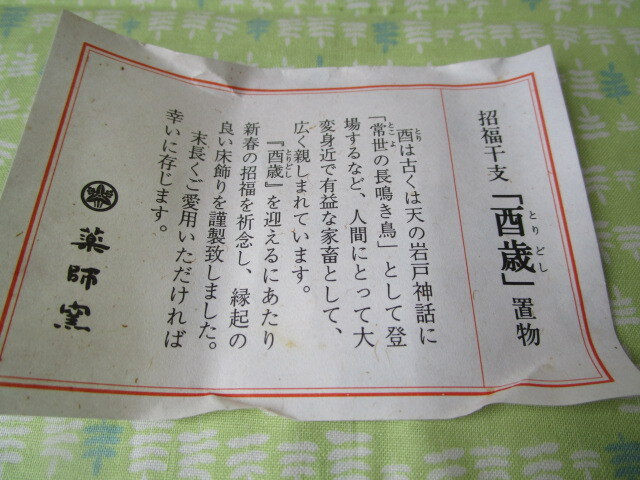 招福干支「酉歳」置物
とりどし
酉は古くは天の岩戸神話に
とり
「常世の長鳴き鳥」として登
とこよ
場するなど、人間にとって大
変身近で有益な家畜として、
広く親しまれています。
『酉歳』を迎えるにあたり
とりどし
新春の招福を祈念し、縁起の
良い床飾りを謹製致しました。
末長くご愛用いただければ
幸いに存じます。
薬師窯